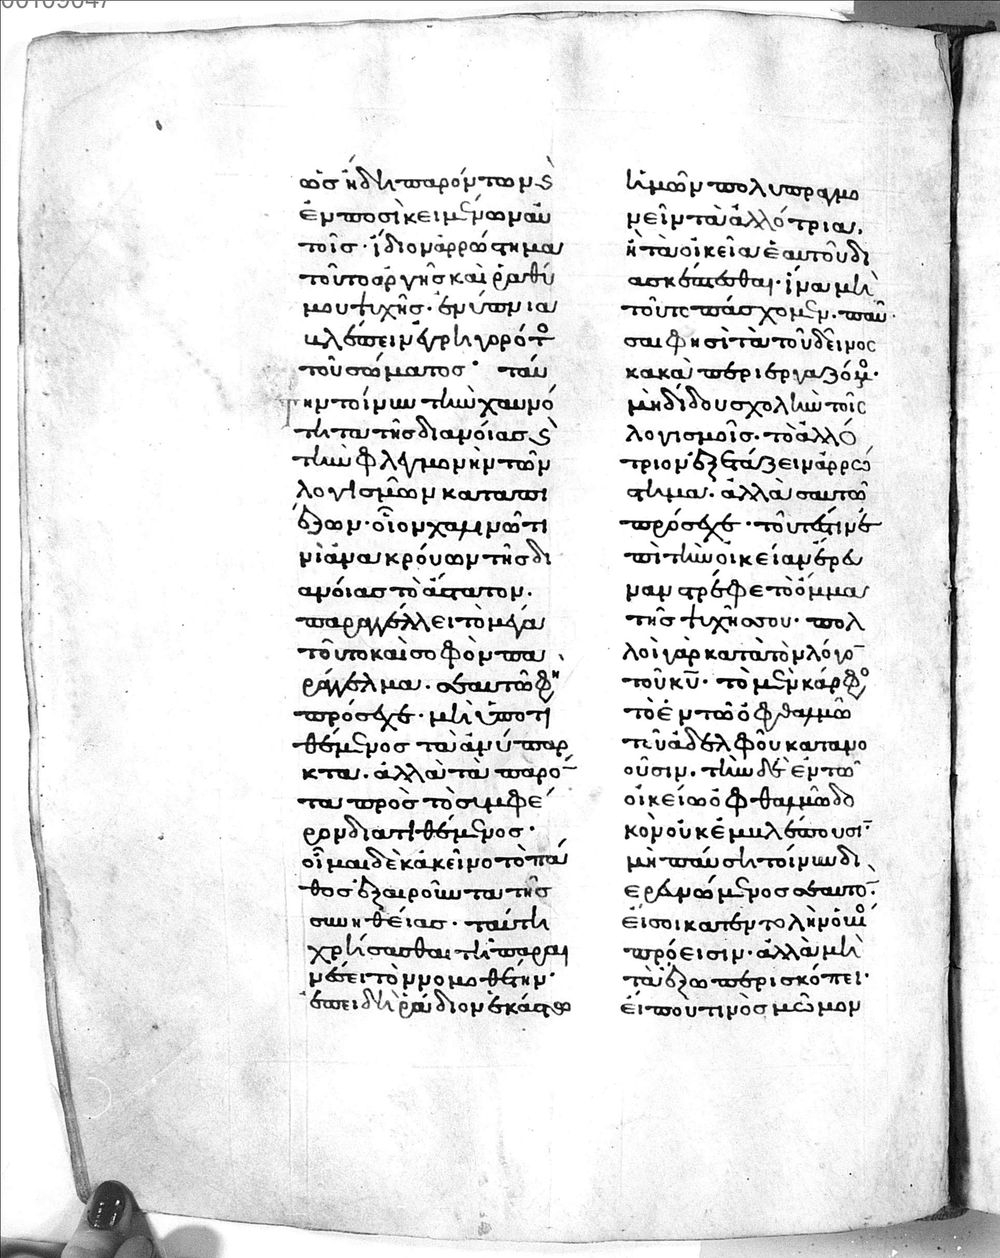 ὡς ἤδη παρόντων ϛ
ἐν ποσὶ κειμένων αὐ
τοῖς· ἴδιον ἀρρώστημα
τοῦτο ἀργῆς καὶ ῥαθύ
μου ψυχῆς· ἐνύπνια
βλέπειν ἐγρηγορότος
τοῦ σώματος· ταύ
την τοίνυν τὴν χαυνό
τητα τῆς διανοίας ϛ
τὴν φλεγμονὴν τῶν
λογισμῶν καταπι
έζων· οἷον χαλινῶ τι
νὶ ἀνακρούων τῆς δι
ανοίας τὸ ἄστατον·
παραγγέλλει τὸ μέγα
τοῦτο καὶ σοφὸν πα
ράγγελμα· σεαυτῶ φη
πρόσεχε· μὴ ὑποτι
θέμενος τὰ ἀνύπαρ
κτα· ἀλλὰ τὰ παρό
τα πρὸς τὸ συμφέ
ρον διατιθέμενος·
οἶμαι δὲ κἀκεῖνο τὸ πά
θος ἐξαιροῦντα τῆς
συνηθείας· ταύτη
χρήσασθαι τῆ παραι
νέσει τὸν νομοθέτην·
ἐπειδὴ ῥάδιον ἑκάστω
ἡμῶν πολυπραγμο
νεῖν τὰ ἀλλότρια,
ἢ τὰ οἰκεῖα ἑαυτοῦ δι
ασκέπτεσθαι· ἵνα μὴ
τοῦτο πάσχομεν· παῦ
σαι φησὶ τὰ τοῦ δεῖνος
κακὰ περιεργαζόμενος·
μὴ δίδου σχολὴν τοῖς
λογισμοῖς· τὸ ἀλλό
τριον ἐξετάζειν ἀρρώ
στημα· ἀλλὰ σαυτῶ
πρόσεχε· τουτέστιν ἐ
πὶ τὴν οἰκείαν ἔρευ
ναν στρέφε τὸ ὄμμα
τῆς ψυχῆς σου· πολ
λοὶ γὰρ κατὰ τὸν λόγο
τοῦ κυ· τὸ μὲν κάρφος
τὸ ἐν τῶ ὀφθαλμῶ
τοῦ ἀδελφοῦ κατανο
οῦσιν, τὴν δὲ ἐν τῶ
οἰκείω ὀφθαλμῶ δο
κὸν οὐκ ἐμβλέπουσι
μὴ παύση τοίνυν δι
ερευνώμενος σεαυτό·
εἴ σοι κατ' ἐντολὴν ὁ βίος
πρόεισιν· ἀλλὰ μὴ
τὰ ἔξω περισκόπει·
εἴ που τινὸς μῶμον